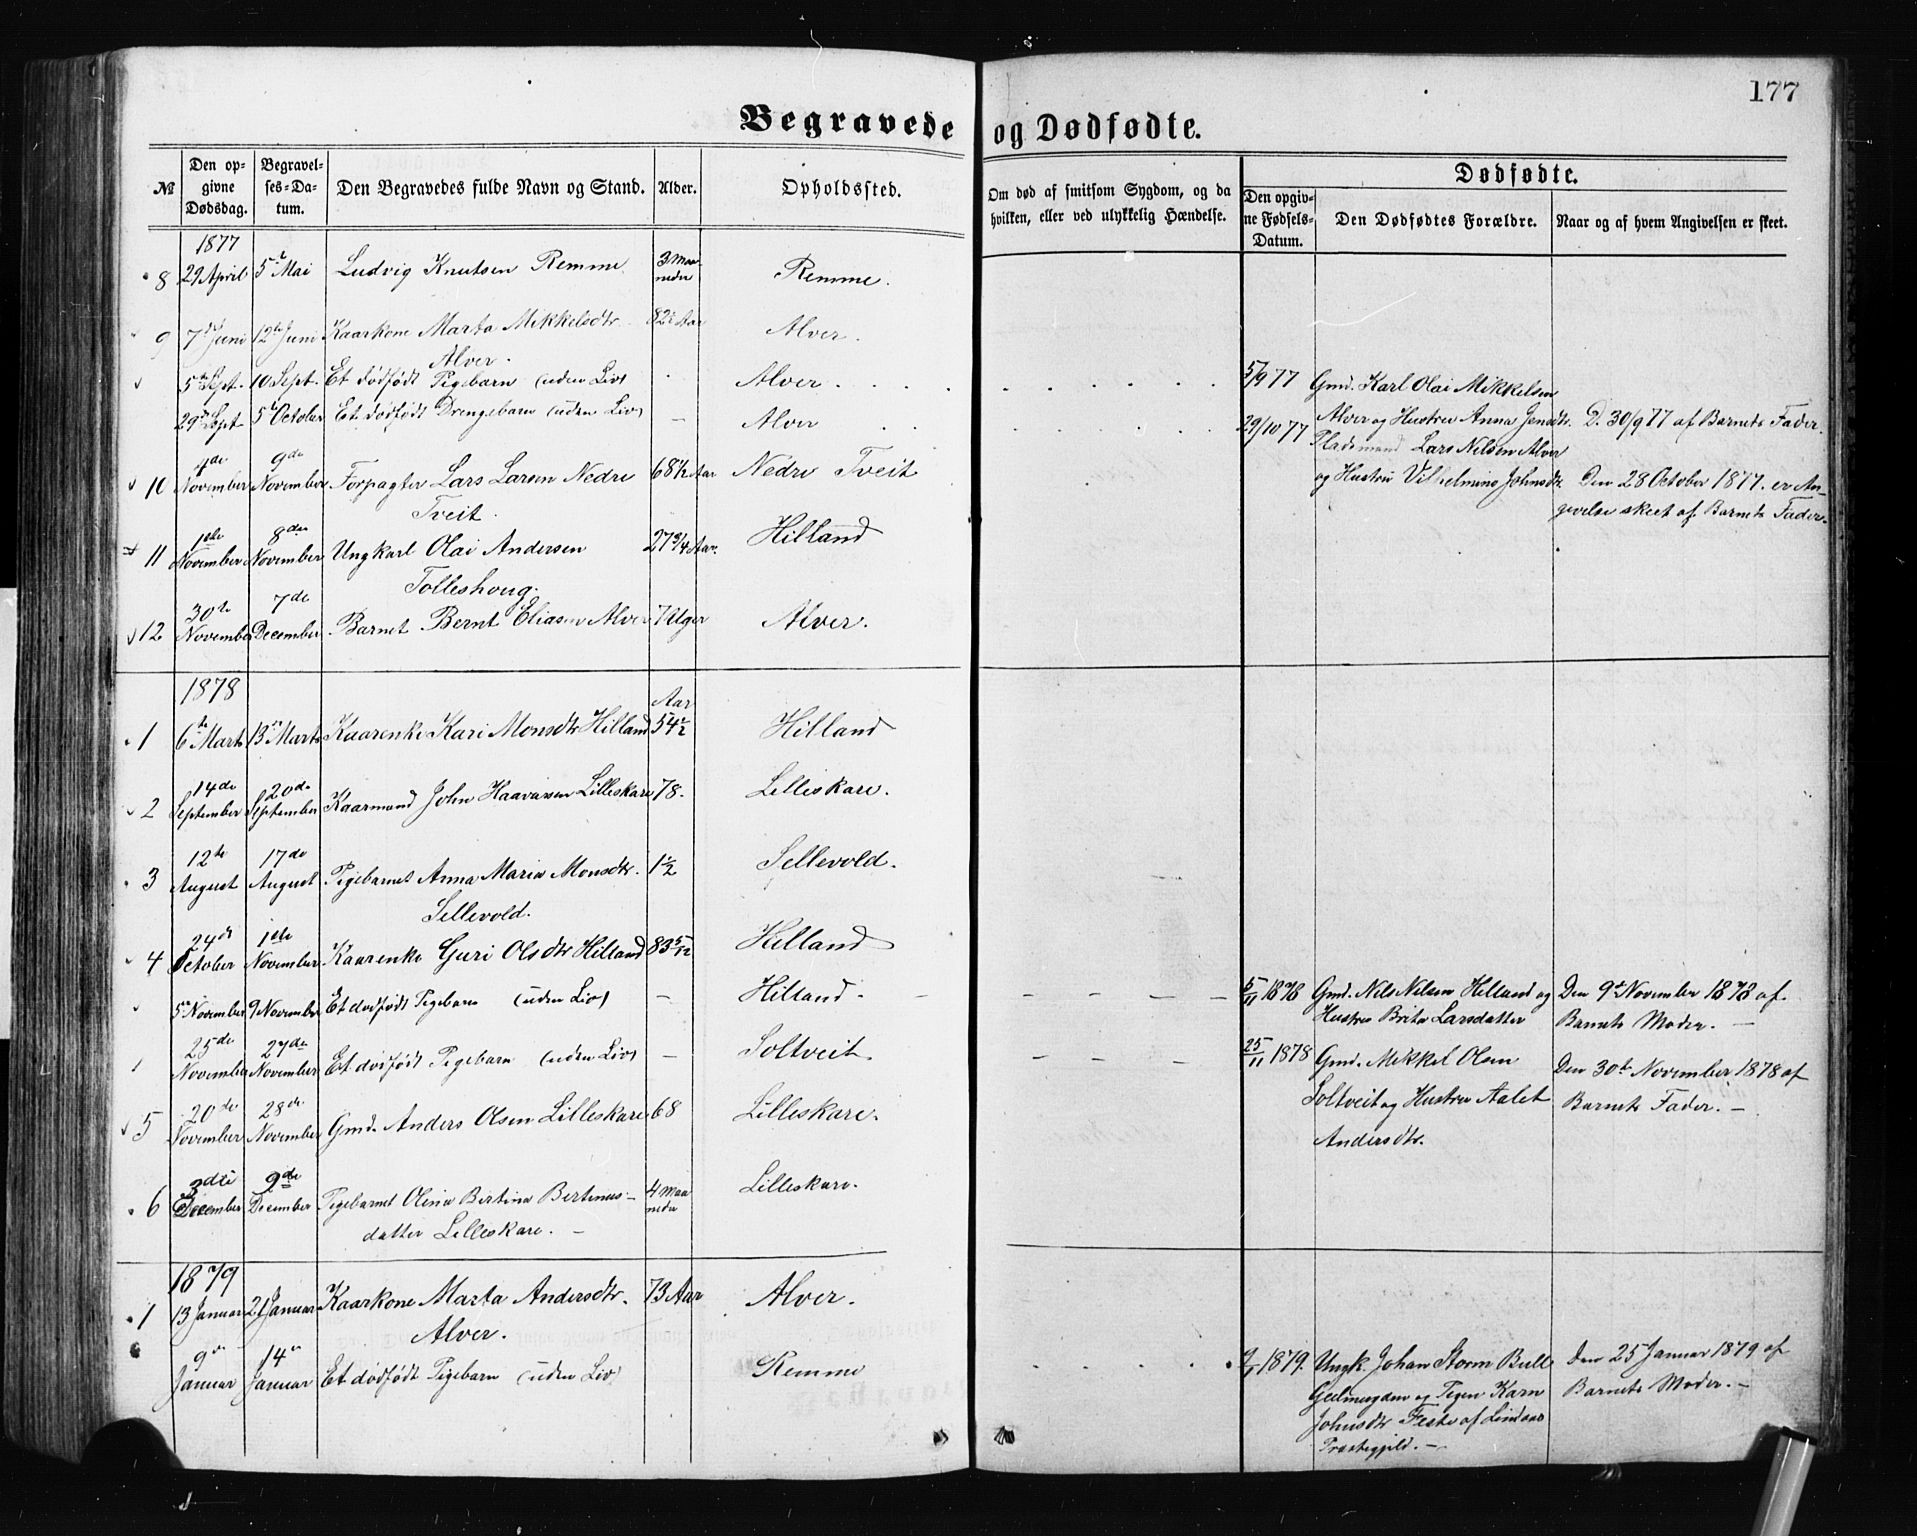 177
Begravede og Dødfødte.
№
Den opgivne Dødsdag.
Begravelses-Datum.
Den Begravedes fulde Navn og Stand.
Alder.
Opholdssted.
Om død af smitsom Sygdom, og da hvilken, eller ved ulykkelig Hændelse.
Dødfødte.
Den opgivne Fødsels-Datum.
Den Dødfødtes Forældre.
Naar og af hvem Angivelsen er skeet.
1877
8 29 April 5te Mai Ludvig Knutsen Remme 3 Maaneder Remme.
9 7de Juni 12te Juni Kaarkone Marta Mikkelsdtr. 82 Aar Alver.
Alver.
5te Sept. 10 Sept. Et dødfødt Pigebarn (uden Liv) Alver 5/9 77 Gmd. Karl Olai Mikkelsen
Alver og Hustru Anna Jensdtr. D. 30/9 77 af Barnets Fader.
29de Sept 5te October Et dødfødt Drengebarn (uden Liv) — Alver 29/10 77 Pladsmand Lars Nilsen Alver
og Hustru Vilhelmine Johnsdtr. Den 28 October 1877. er Angivelse skeet af Barnets Fader.
10 4de November 9de November Forpagter Lars Larsen Nedre 68 1/2 Aar Nedre Tveit
Tveit.
11 1ste November 8de November Ungkarl Olai Andersen 27 3/4 Aar. Hilland
Tolleshoug.
12 30te November 7de December Barnet Bernt Eliasen Alver 7 Uger Alver.
1878
1 6te Marts 13de Marts Kaarenke Kari Monsdtr Hilland Aar 54 1/2 Hilland
2 14de September 20de September Kaarmand John Haavarsen Lilleskare 78. Lilleskare.
3 12te August 17de August Pigebarnet Anna Maria Monsdtr. 1 1/2 Sellevold.
Sellevold.
4 24de October 1ste November Kaarenke Guri Olsdtr Hilland 83 5/12 Hilland
5te November 9 November Et dødfødt Pigebarn (uden Liv) — Hilland. 5/11 1878 Gmd. Nils Nilsen Hilland og Den 9de November 1878 af
Hustru Brita Larsdatter Barnets Moder. —
25de November 27de November Et dødfødt Pigebarn (uden Liv) — Soltveit. 25/11 1878 Gmd. Mikkel Olsen Den 30te November 1878 af
Soltveit og Hustru Aalet Barnets Fader. —
Andersdtr.
5 20de November 28de November Gmd. Anders Olsen Lilleskare 68 Lilleskare.
6 3die December 9de December Pigebarnet Olina Bertina Bertinus- 4 Maaneder Lilleskare.
datter Lilleskare. —
1879
1 13 Januar 21 Januar Kaarkone Marta Andersdtr. 73 Aar Alver.
Alver.
9de Januar 14de Januar Et dødfødt Pigebarn (uden Liv) Remme 9/1 1879. Ungk. Johan Storm Bull Den 25 Januar 1879 af
og Pigen Karn Barnets Moder. —
Johnsdtr Feste af Lindaas
Præstegjeld. —